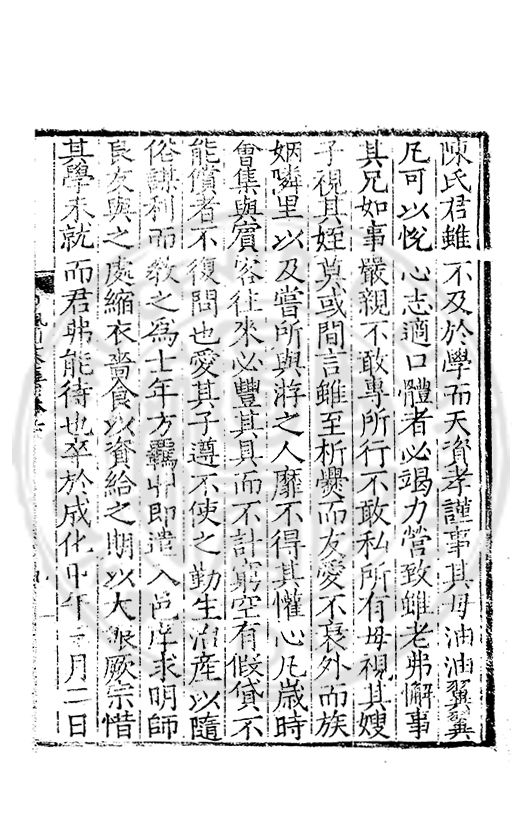 陳氏君雖不及於學而天資孝謹事其母油油翼翼
凡可以悅心志適口體者必竭力營致雖老弗懈事
其兄如事嚴親不敢專所行不敢私所有母視其嫂
子視其姪莫或間言雖至析爨而友愛不衰外而族
姻隣里以及嘗所與游之人靡不得其懽心凡歲時
會集與賓客往來必豐其具而不計窮空有假貸不
能償者不復問也愛其子遵不使之勤生治產以隨
俗謀利而教之為士年方羈丱即遣入邑庠求明師
良友與之處縮衣嗇食以資給之期以大振厥宗惜
其學未就而君弗能待也卒於成化年月二日